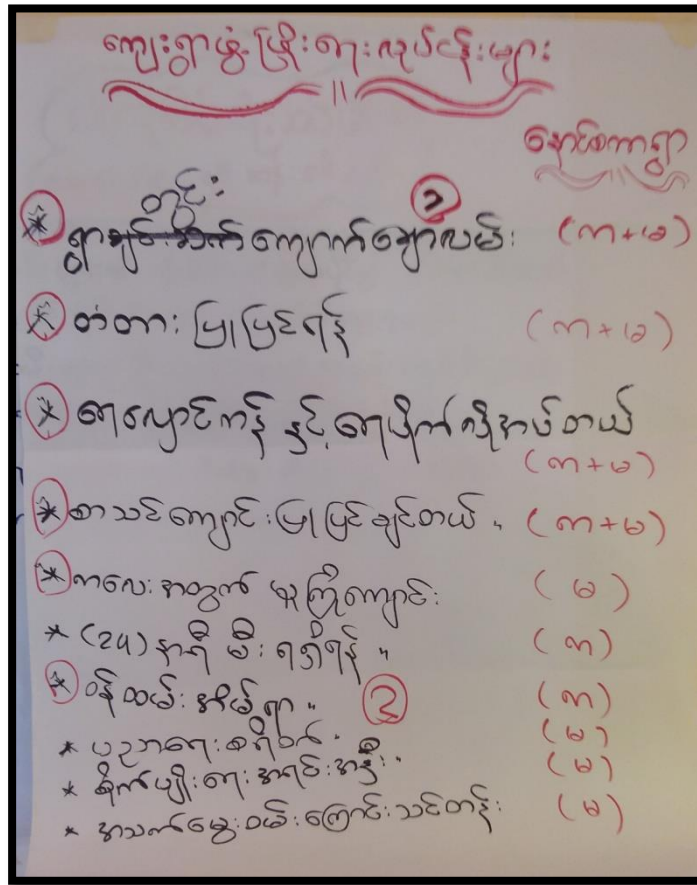 ကျေးရွာဖွံ့ဖြိုးရေးလုပ်ငန်းများ
နောင်စကာရွာ
တွင်း
* ရွာချင်းဆက် ကျောက်ချောလမ်း ၁ (ကာ+မ)
* တံတား ပြုပြင်ရန် (ကာ+မ)
* ရေလှောင်ကန် နှင့် ရေပိုက်လိုအပ်တယ်
(ကာ+မ)
* စာသင်ကျောင်း ပြုပြင်ချင်တယ် ။ (ကာ+မ)
* ကလေးအတွက် မူကြိုကျောင်း (မ)
* (24) နာရီ မီးရရှိရန် ။ (ကာ)
* ဝန်ထမ်းအိမ်ရာ ။ 2 (ကာ)
* ပညာရေးစရိတ် ။ (မ)
* စိုက်ပျိုးရေးအရင်းအနှီး ။ (မ)
* အသက်မွေးဝမ်းကြောင်းသင်တန်း (မ)